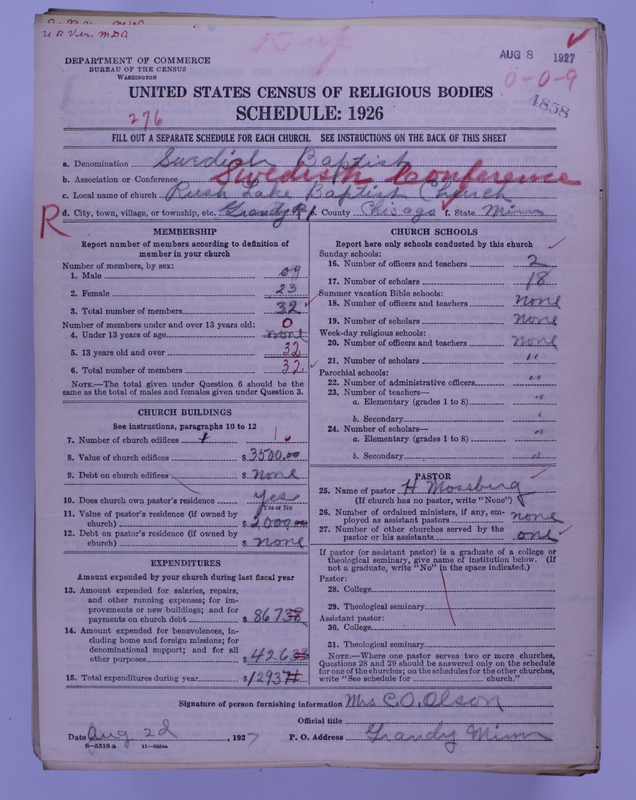 U.R.Ver. MDA
AUG 8 1927
0-0-9
4858
DEPARTMENT OF COMMERCE
BUREAU OF THE CENSUS
WASHINGTON
UNITED STATES CENSUS OF RELIGIOUS BODIES
SCHEDULE: 1926
276
FILL OUT A SEPARATE SCHEDULE FOR EACH CHURCH. SEE INSTRUCTIONS ON THE BACK OF THIS SHEET
a. Denomination Swedish Baptist
b. Association or Conference Swedish Conference
c. Local name of church Rush Lake Baptist Church
R
d. City, town, village, or township, etc. Grandy e. County Chisago f. State Minn
MEMBERSHIP
Report number of members according to definition of
member in your church
Number of members, by sex:
1. Male 09
2. Female 23
3. Total number of members 32
Number of members under and over 13 years old:
4. Under 13 years of age none 0
5. 13 years old and over 32
6. Total number of members 32
NOTE.—The total given under Question 6 should be
same as the total of males and females given under Question 3.
CHURCH BUILDINGS
See instructions, paragraphs 10 to 12
7. Number of church edifices 1
8. Value of church edifices $3500.00
9. Debt on church edifices $ None
10. Does church own pastor's residence yes
Yes or No
11. Value of pastor's residence (if owned by
church) $2000.00
12. Debt on pastor's residence (if owned by
church) $ None
EXPENDITURES
Amount expended by your church during last fiscal year
13. Amount expended for salaries, repairs,
and other running expenses; for im-
provements or new buildings; and for
payments on church debt $867
14. Amount expended for benevolences, in-
cluding home and foreign missions; for
denominational support; and for all
other purposes $426
15. Total expenditures during year $1293
CHURCH SCHOOLS
Report here only schools conducted by this church
Sunday schools:
16. Number of officers and teachers 2
17. Number of scholars 18
Summer vacation Bible schools:
18. Number of officers and teachers None
19. Number of scholars None
Week-day religious schools:
20. Number of officers and teachers None
21. Number of scholars "
Parochial schools:
22. Number of administrative officers "
23. Number of teachers—
a. Elementary (grades 1 to 8) "
b. Secondary "
24. Number of scholars—
a. Elementary (grades 1 to 8) "
b. Secondary "
PASTOR
25. Name of pastor H Mossberg
(If church has no pastor, write "None")
26. Number of ordained ministers, if any, em-
ployed as assistant pastors none
27. Number of other churches served by the
pastor or his assistants one
If pastor (or assistant pastor) is a graduate of a college or
theological seminary, give name of institution below. (If
not a graduate, write "No" in the space indicated.)
Pastor:
28. College
29. Theological seminary
Assistant pastor:
30. College
31. Theological seminary
NOTE.—Where one pastor serves two or more churches,
Questions 28 and 29 should be answered only on the schedule
for one of the churches; on the schedules for the other churches,
write "See schedule for church."
Signature of person furnishing information Mrs C.O. Olson
Official title
Date Aug 2d, 1927 P. O. Address Grandy Minn
8-5518 a 11-9034a